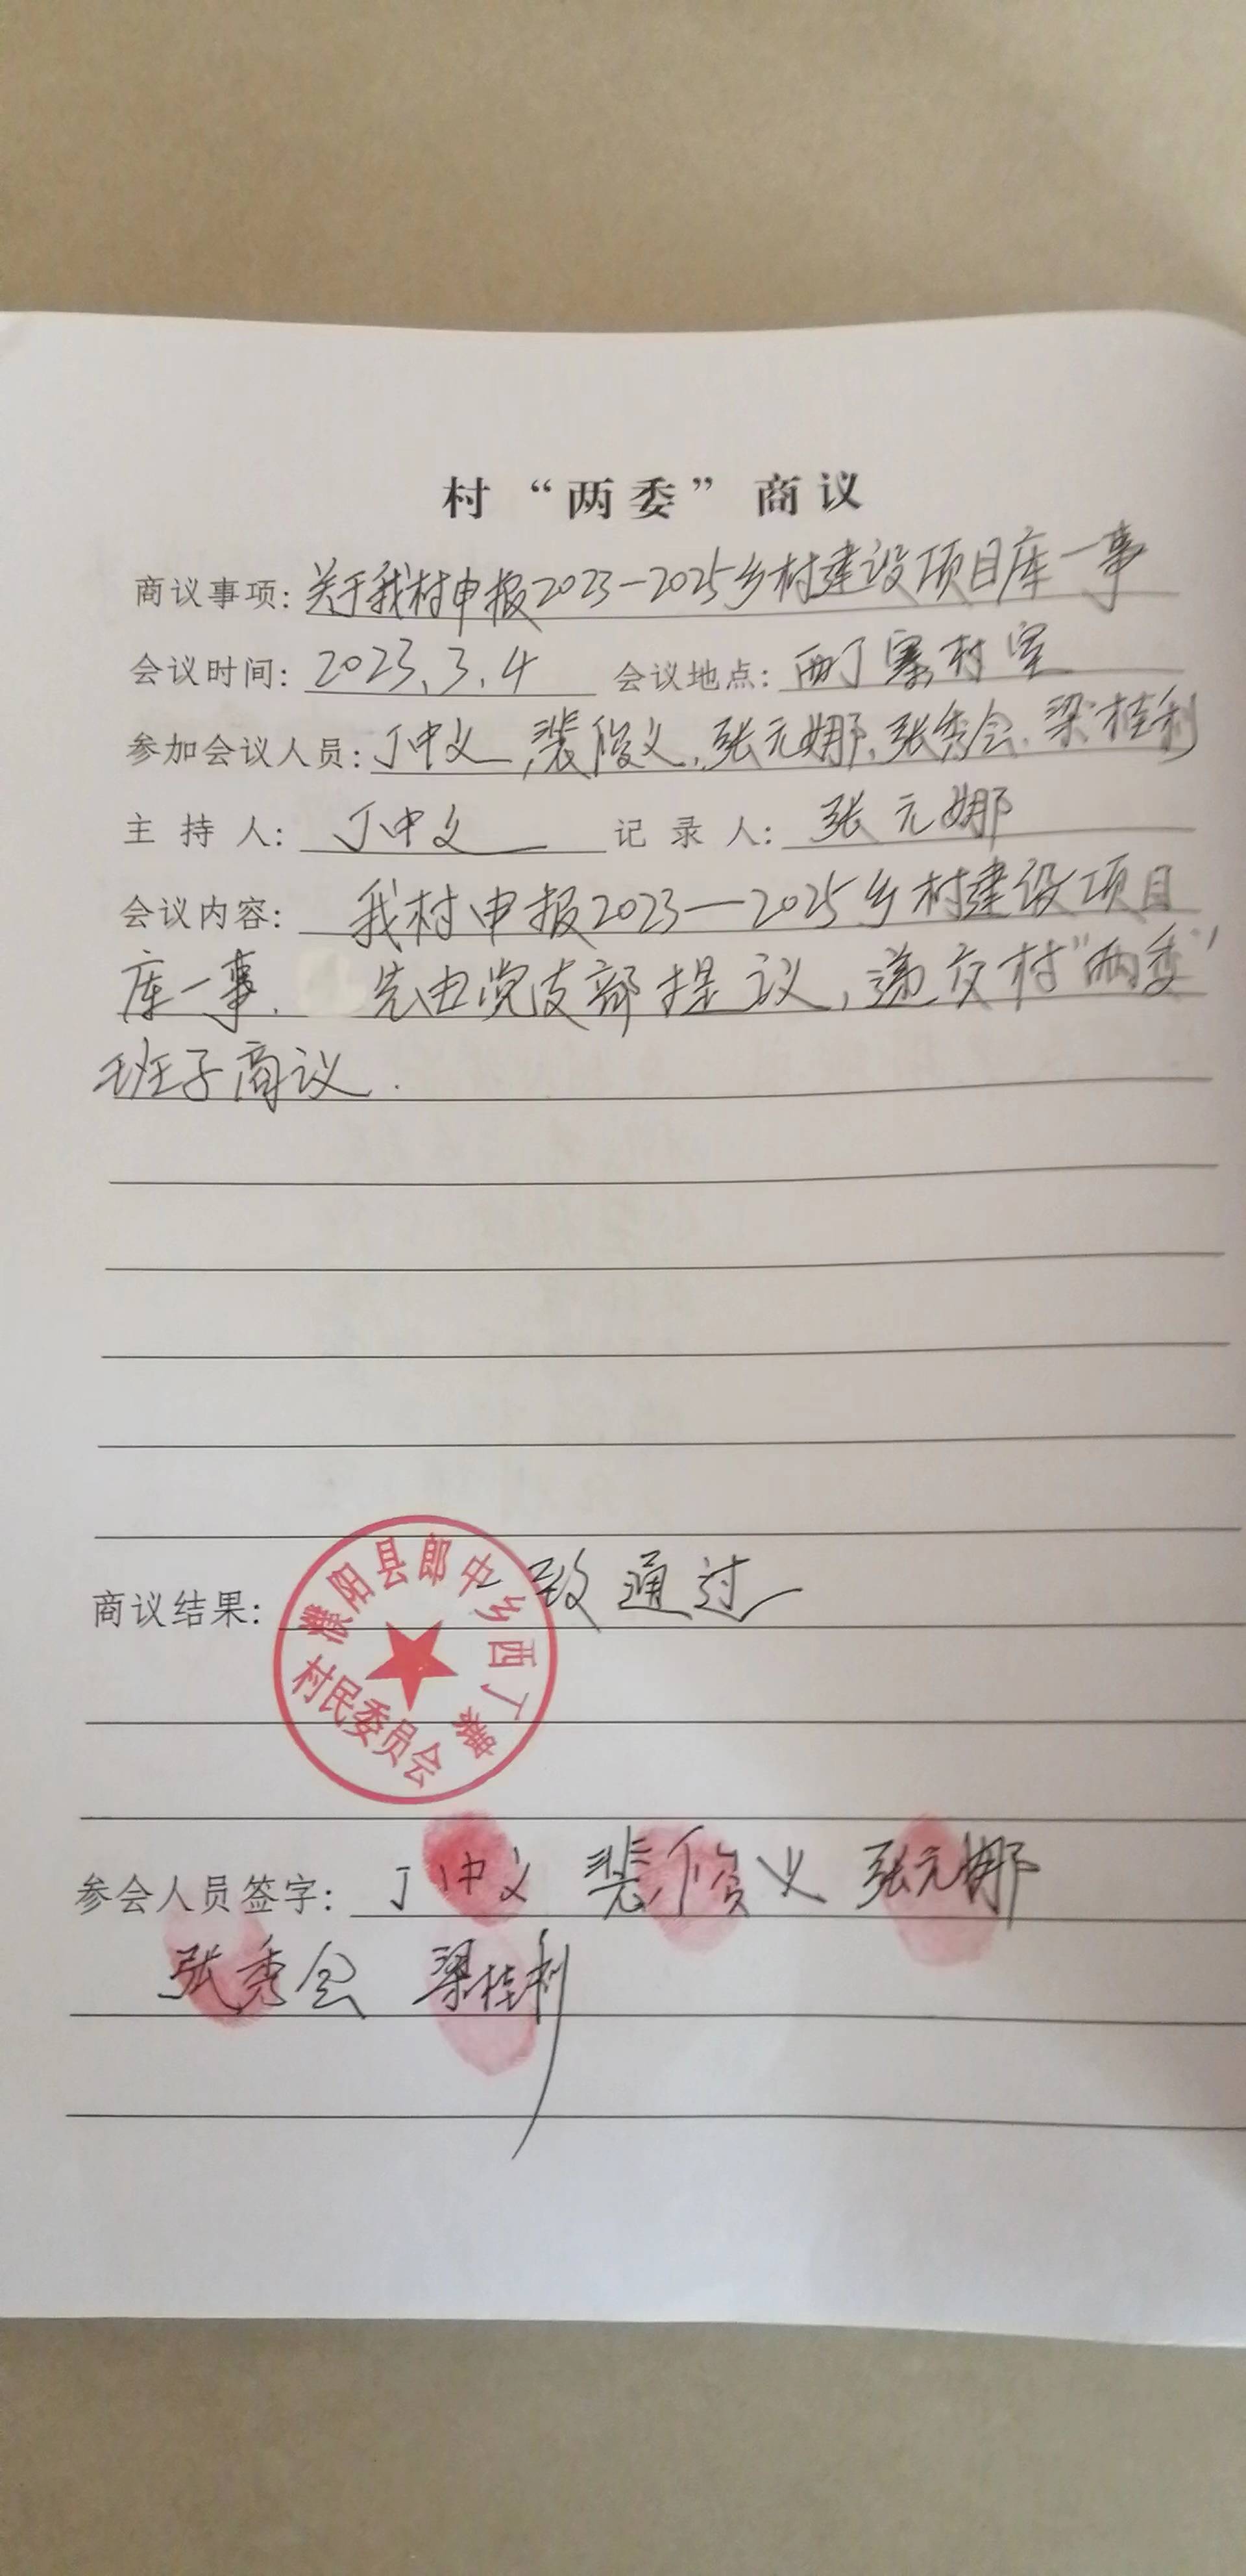 村“两委”商议
商议事项: 关于我村申报2023-2025乡村建设项目库一事
会议时间: 2023.3.4 会议地点: 西丁寨村室
参加会议人员: 丁中义,裴俊义,张元娜,张秀会,梁桂利
主持人: 丁中义 记录人: 张元娜
会议内容: 我村申报2023—2025乡村建设项目
库一事. 先由党支部提议,递交村“两委”
班子商议.
商议结果: 一致通过
濮阳县郎中乡西丁寨
村民委员会
参会人员签字: 丁中义 裴俊义 张元娜
张秀会 梁桂利